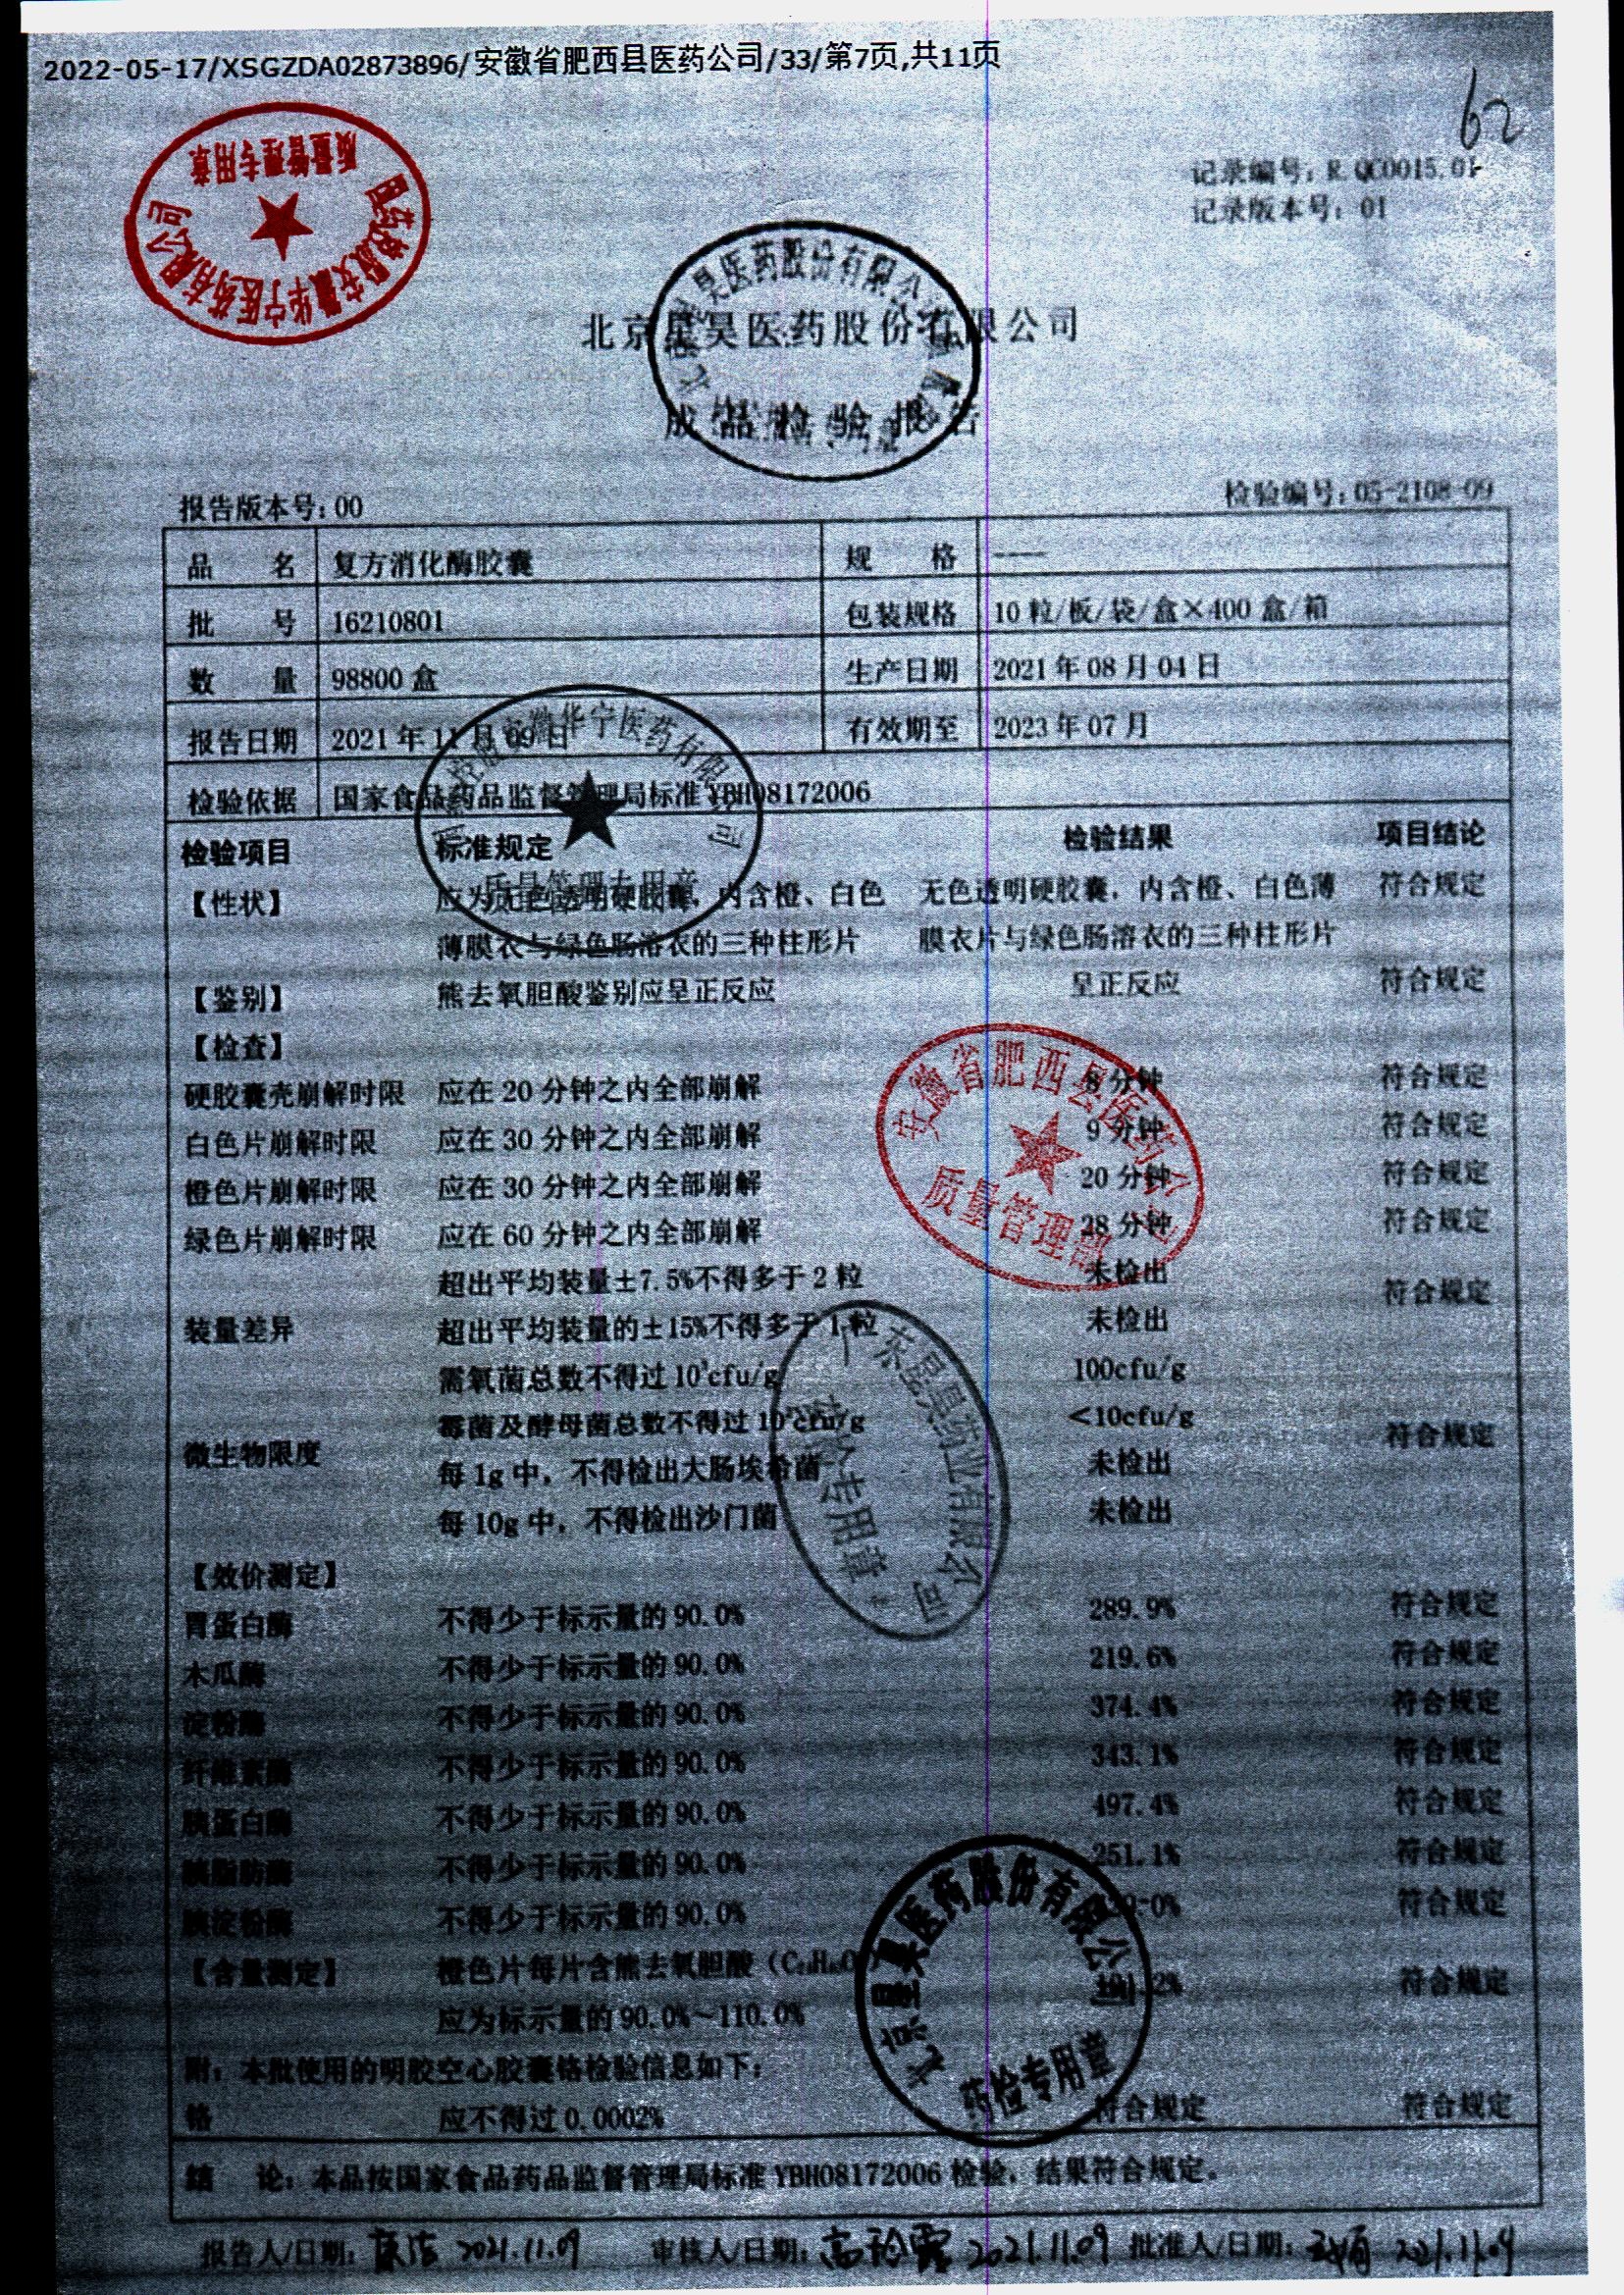 2022-05-17/XSGZDA02873896/安徽省肥西县医药公司/33/第7页,共11页
62
质量管理专用章
国药控股安徽华宁医药有限公司
记录编号：R.QC0015.01
记录版本号：01
北京星昊医药股份有限公司
成品检验报告
报告版本号：00 检验编号：05-2108-09
品 名 复方消化酶胶囊 规 格 ——
批 号 16210801 包装规格 10 粒/板/袋/盒×400 盒/箱
数 量 98800 盒 生产日期 2021 年 08 月 04 日
报告日期 2021 年 11 月 09 日 有效期至 2023 年 07 月
检验依据 国家食品药品监督管理局标准 YBH08172006
国药控股安徽华宁医药有限公司
质量管理专用章
检验项目 标准规定 检验结果 项目结论
【性状】 应为无色透明硬胶囊，内含橙、白色 无色透明硬胶囊，内含橙、白色薄 符合规定
薄膜衣与绿色肠溶衣的三种柱形片 膜衣片与绿色肠溶衣的三种柱形片
【鉴别】 熊去氧胆酸鉴别应呈正反应 呈正反应 符合规定
【检查】
硬胶囊壳崩解时限 应在 20 分钟之内全部崩解 8 分钟 符合规定
白色片崩解时限 应在 30 分钟之内全部崩解 9 分钟 符合规定
橙色片崩解时限 应在 30 分钟之内全部崩解 20 分钟 符合规定
绿色片崩解时限 应在 60 分钟之内全部崩解 28 分钟 符合规定
安徽省肥西县医药公司
质量管理部
超出平均装量±7.5%不得多于 2 粒 未检出 符合规定
装量差异 超出平均装量的±15%不得多于 1 粒 未检出
需氧菌总数不得过 10³cfu/g 100cfu/g
霉菌及酵母菌总数不得过 10²cfu/g <10cfu/g 符合规定
微生物限度
每 1g 中，不得检出大肠埃希菌 未检出
每 10g 中，不得检出沙门菌 未检出
广东星昊药业有限公司
专用章
【效价测定】
胃蛋白酶 不得少于标示量的 90.0% 289.9% 符合规定
木瓜酶 不得少于标示量的 90.0% 219.6% 符合规定
淀粉酶 不得少于标示量的 90.0% 374.4% 符合规定
纤维素酶 不得少于标示量的 90.0% 343.1% 符合规定
胰蛋白酶 不得少于标示量的 90.0% 497.4% 符合规定
胰脂肪酶 不得少于标示量的 90.0% 251.1% 符合规定
胰淀粉酶 不得少于标示量的 90.0% 符合规定
【含量测定】 橙色片每片含熊去氧胆酸 符合规定
应为标示量的 90.0%～110.0%
北京星昊医药股份有限公司
药检专用章
附：本批使用的明胶空心胶囊铬检验信息如下：
铬 应不得过 0.0002% 符合规定 符合规定
结 论：本品按国家食品药品监督管理局标准 YBH08172006 检验，结果符合规定。
报告人/日期： 2021.11.09 审核人/日期： 2021.11.09 批准人/日期： 2021.11.09